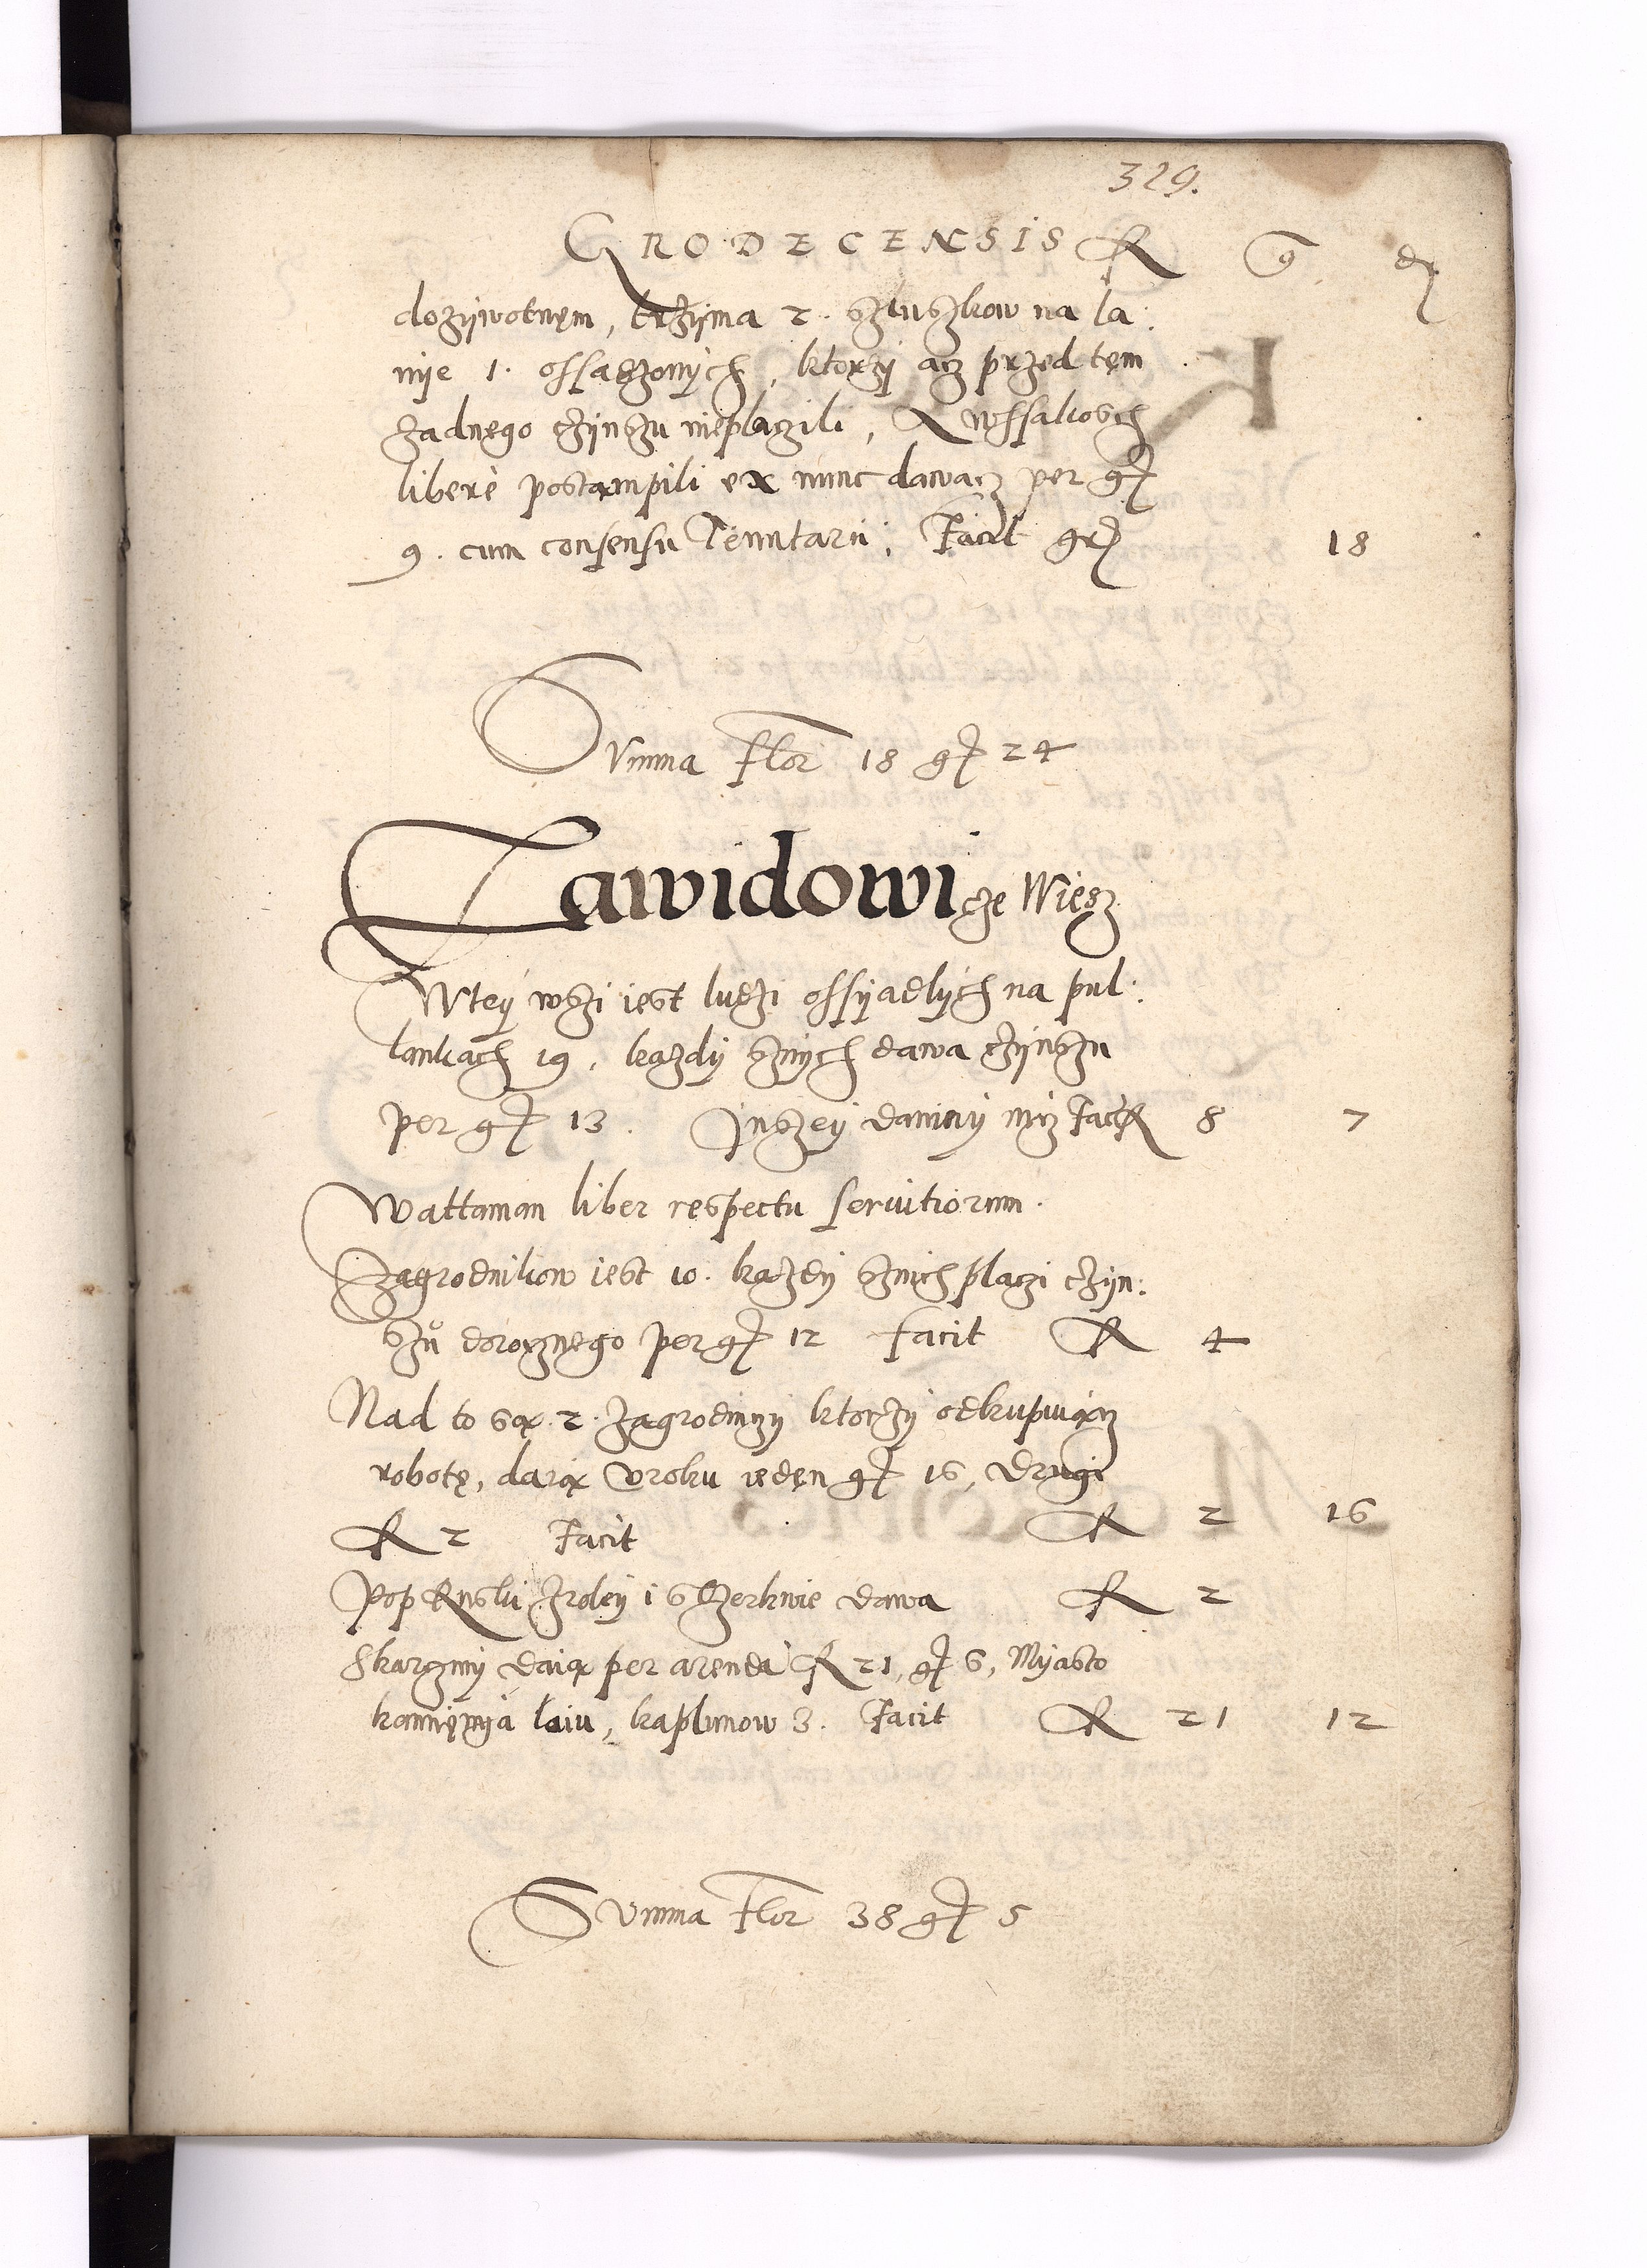 329.
GRODECENSIS R g d
dozywotnęm, trzyma 2. sluszkow na la:
nye 1. ossadzonych, ktorzy acz przed tem
zadnego czynszu nieplaczili,
libere postąmpili ex nunc dawacz per gr
9. cum consensu Tenutarii, Facit gr 18
Summa Flor 18 gr 24
Zawidowicze Wiesz
Wtey wszi iest ludzi ossyadlych na pul:
lankach 19, kazdy sznych dawa czynszu
per gr 13. Inszey daniny nicz Facit R 8 7
Wattaman liber respectu seruitiorum.
Zagrodnikow iest 10. kazdy sznich placzi czyn:
szu dorocznego per gr 12 facit R 4
Nad to są 2. zagrodniczy ktorzy odkupuiącz
robotę, daią vroku ieden gr 16, drugi
R 2 Facit R 2 16
Pop Ruski zroley i sczerkwie dawa R 2
Skarczmy daią per arenda R 21, gr 6, Myasto
kamięnya loiu, kaplunow 3. Facit R 21 12
Summa Flor 38 gr 5